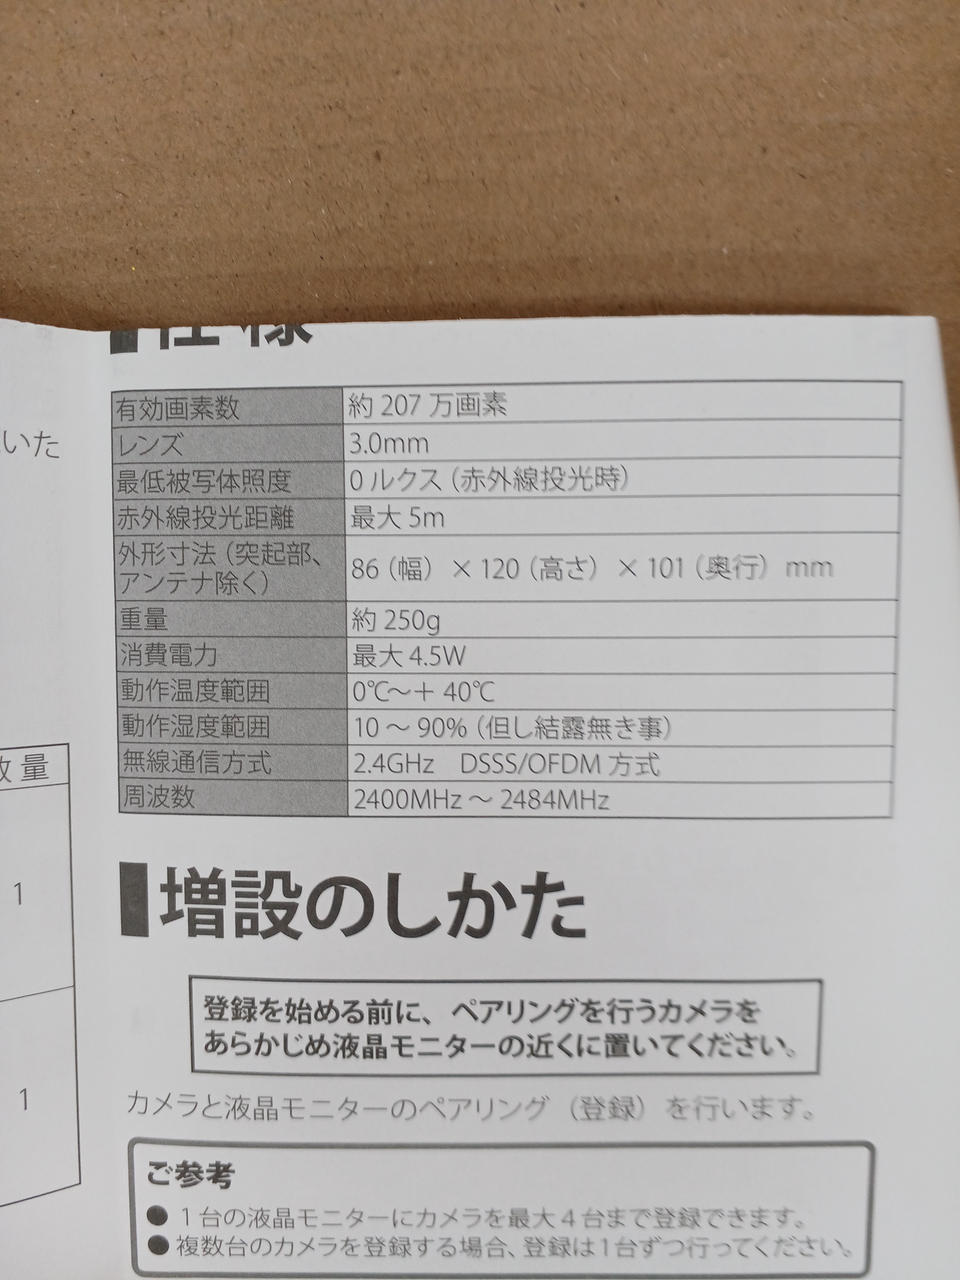 仕様
いた
有効画素数 約 207 万画素
レンズ 3.0mm
最低被写体照度 0 ルクス（赤外線投光時）
赤外線投光距離 最大 5m
外形寸法（突起部、
アンテナ除く） 86（幅）× 120（高さ）× 101（奥行）mm
重量 約 250g
消費電力 最大 4.5W
動作温度範囲 0℃～＋ 40℃
動作湿度範囲 10 ～ 90%（但し結露無き事）
無線通信方式 2.4GHz DSSS/OFDM 方式
周波数 2400MHz ～ 2484MHz
数量
1
1
増設のしかた
登録を始める前に、ペアリングを行うカメラを
あらかじめ液晶モニターの近くに置いてください。
カメラと液晶モニターのペアリング（登録）を行います。
ご参考
● 1 台の液晶モニターにカメラを最大 4 台まで登録できます。
● 複数台のカメラを登録する場合、登録は1台ずつ行ってください。